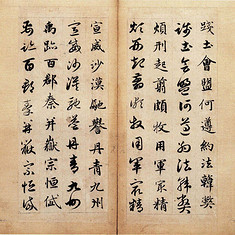 踐土會盟何遵約法韓弊
踐土會盟何遵約法韓弊
煩刑起翦頗牧用軍最精
煩刑起翦頗牧用軍最精
宣威沙漠馳譽丹青九州
宣威沙漠馳譽丹青九州
禹跡百郡秦并嶽宗恒岱
禹跡百郡秦并嶽宗恒岱